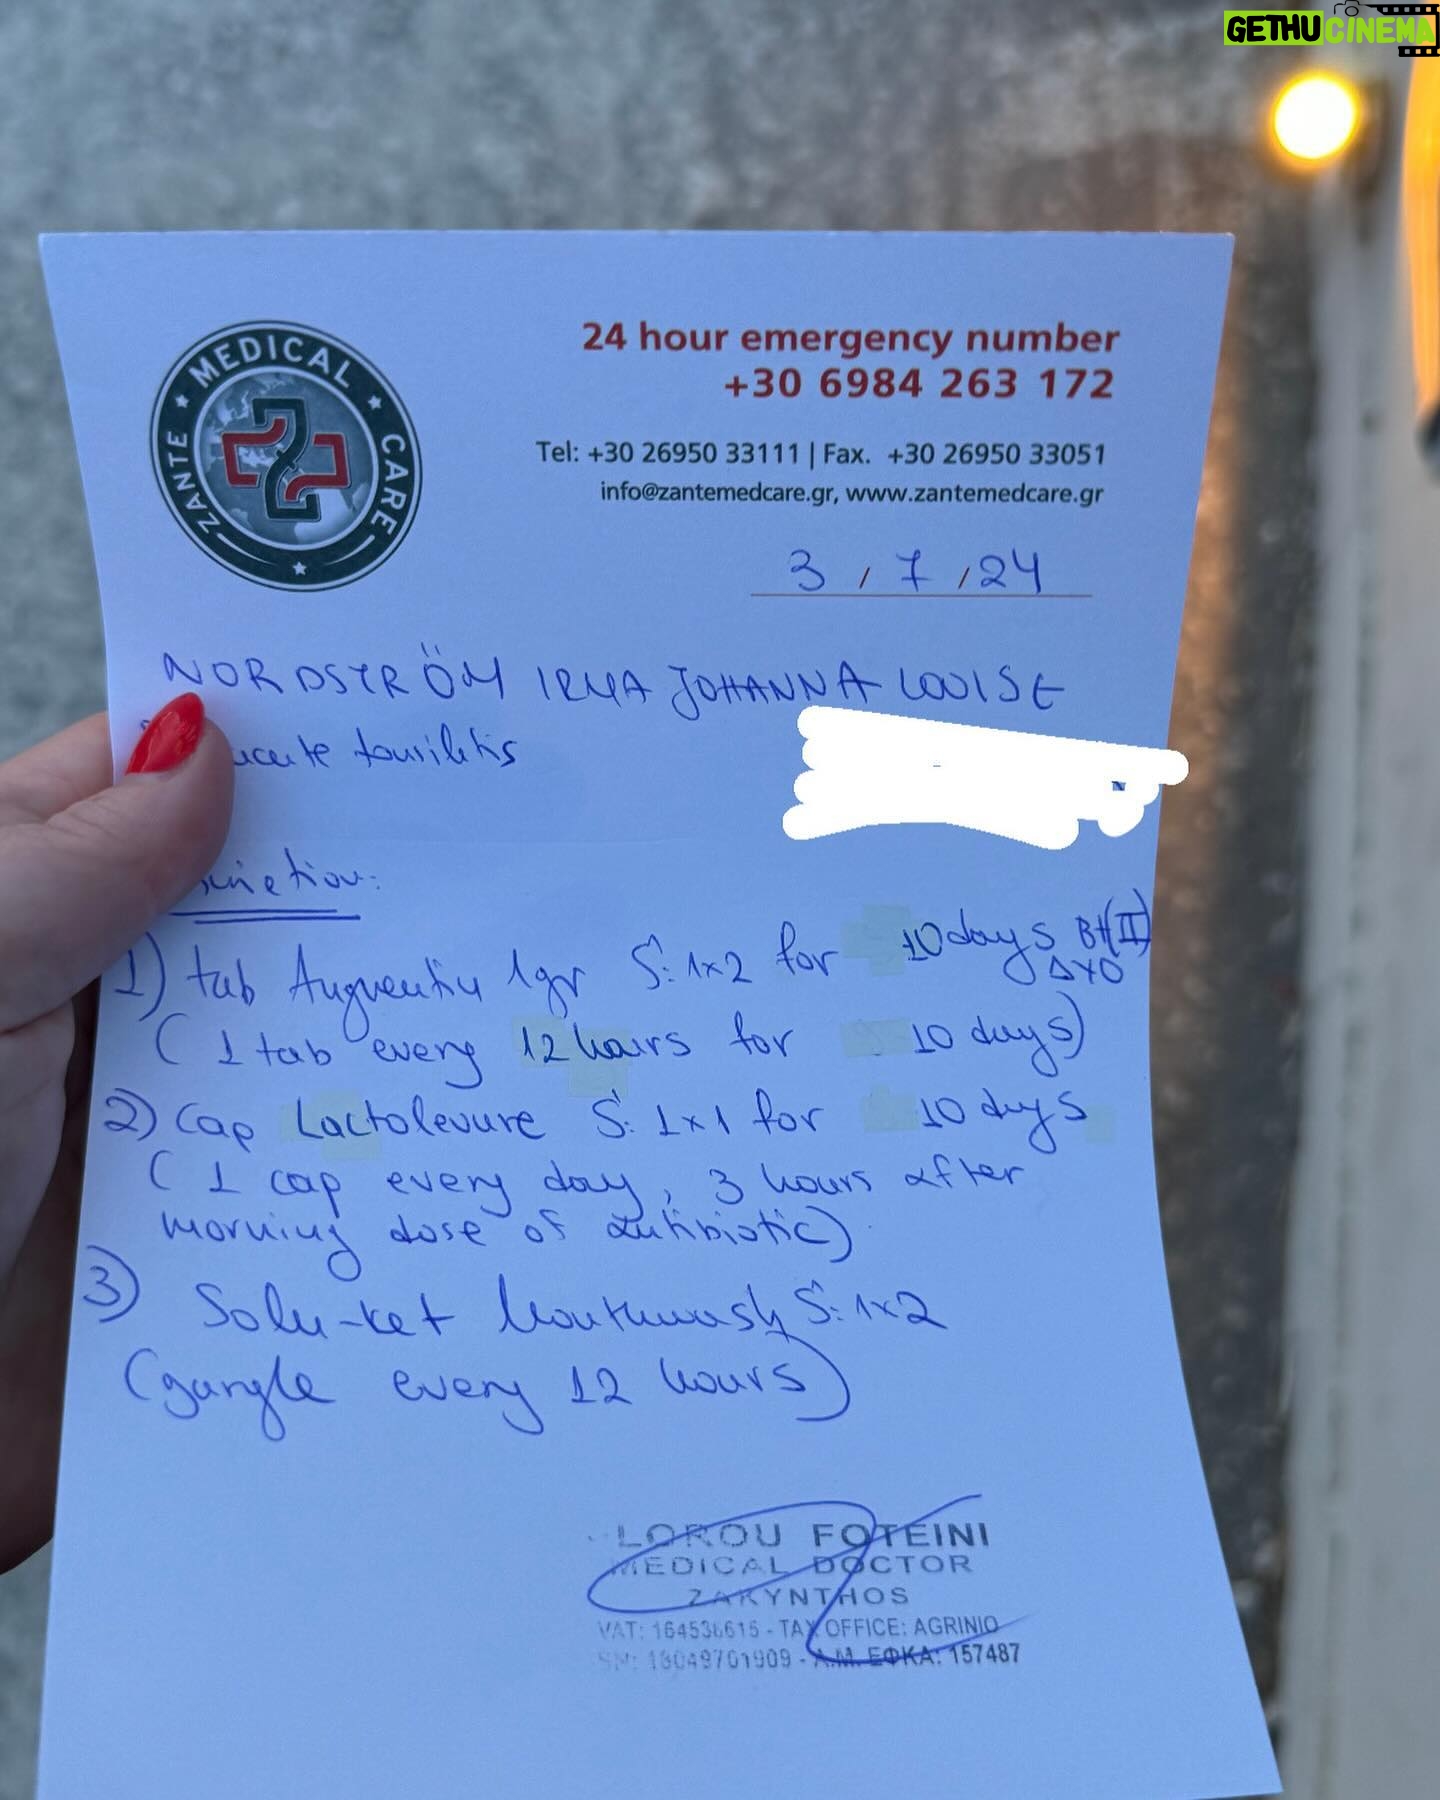 GETHUCINEMA
ZANTE ★ MEDICAL ★ CARE ★
24 hour emergency number
+30 6984 263 172
Tel: +30 26950 33111 | Fax. +30 26950 33051
info@zantemedcare.gr, www.zantemedcare.gr
3 / 7 / 24
NORDSTRÖM IRMA JOHANNA LOUISE
acute
1) tab Augmentin 1gr S: 1x2 for 10 days B+(II)
ΔΥΟ
(1 tab every 12 hours for 10 days)
2) cap Lactolevure S: 1x1 for 10 days
(1 cap every day, 3 hours after
morning dose of antibiotic)
3) Solu-ket Mouthwash S: 1x2
(gargle every 12 hours)
LOROU FOTEINI
MEDICAL DOCTOR
ZAKYNTHOS
VAT: - TAX OFFICE: AGRINIO
A.M. ΕΦΚΑ: 157487